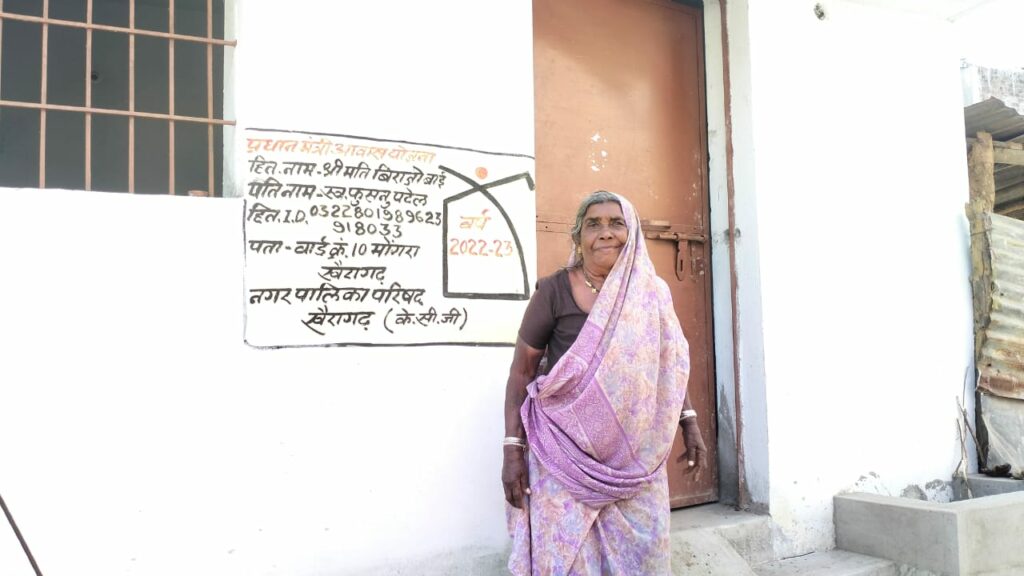 प्रधान मंत्री आवास योजना
हित. नाम - श्रीमति बिराजो बाई
पति नाम - स्व. फुसनु पटेल
हित. I.D. 0322801989623
918033
पता - वार्ड क्रं. 10 मोंगरा
खैरागढ़
नगर पालिका परिषद
खैरागढ़ (के.सी.जी)
वर्ष
2022-23